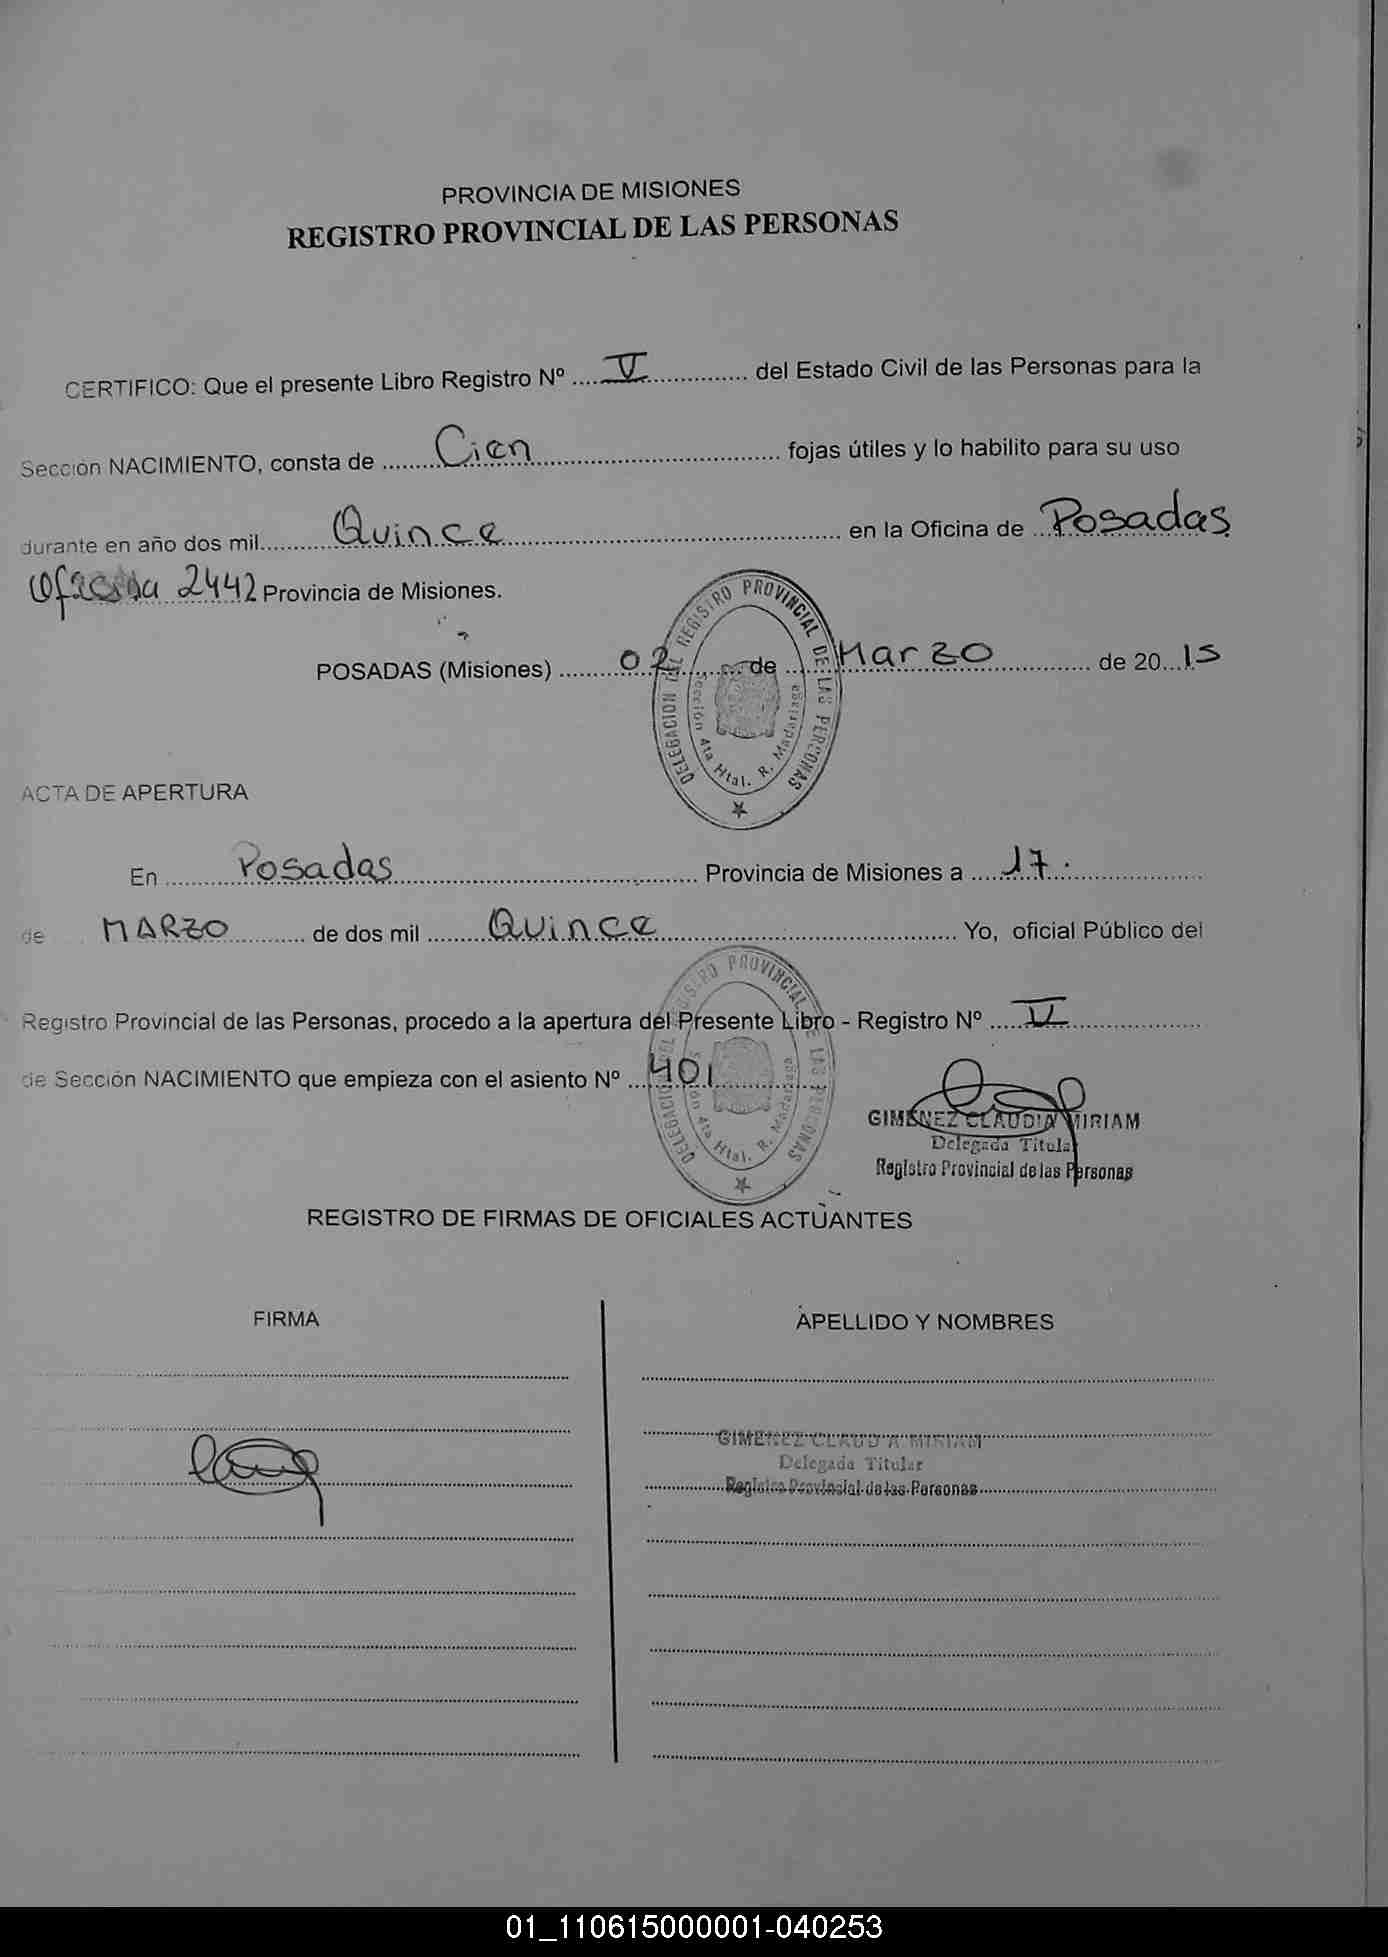 PROVINCIA DE MISIONES
REGISTRO PROVINCIAL DE LAS PERSONAS
CERTIFICO: Que el presente Libro Registro Nº .... V .... del Estado Civil de las Personas para la
Sección NACIMIENTO, consta de .... Cien .... fojas útiles y lo habilito para su uso
durante en año dos mil.... Quince .... en la Oficina de ... Posadas
Oficina 2442 Provincia de Misiones.
POSADAS (Misiones) .... 02 .... de .... Marzo .... de 20...15
DELEGACION DEL REGISTRO PROVINCIAL DE LAS PERSONAS
Sección 4ta Htal. R. Madariaga
ACTA DE APERTURA
En .... Posadas .... Provincia de Misiones a .... 17. ....
de MARZO .... de dos mil .... Quince .... Yo, oficial Público del
Registro Provincial de las Personas, procedo a la apertura del Presente Libro - Registro Nº .... V ....
de Sección NACIMIENTO que empieza con el asiento Nº .... 401 ....
DELEGACION DEL REGISTRO PROVINCIAL DE LAS PERSONAS
Sección 4ta Htal. R. Madariaga
GIMENEZ CLAUDIA MIRIAM
Delegada Titular
Registro Provincial de las Personas
REGISTRO DE FIRMAS DE OFICIALES ACTUANTES
FIRMA APELLIDO Y NOMBRES
GIMENEZ CLAUDIA MIRIAM
Delegada Titular
Registro Provincial de las Personas
01_110615000001-040253